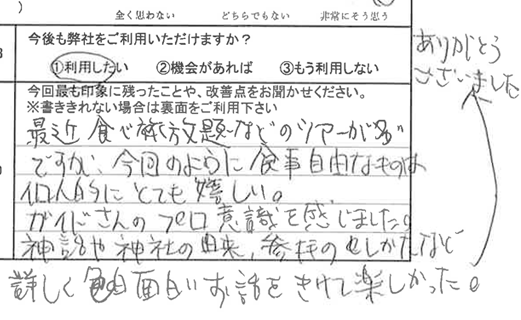 )
全く思わない どちらでもない 非常にそう思う
今後も弊社をご利用いただけますか？
①利用したい ②機会があれば ③もう利用しない
今回最も印象に残ったことや、改善点をお聞かせください。
※書ききれない場合は裏面をご利用下さい
最近 食べ放題などのツアーが多い
ですが、今回のように食事自由なものは
個人的にとても嬉しい。
ガイドさんのプロ意識を感じました。
神話や神社の由来、参拝のしかたなど
詳しく 面白いお話をきけて楽しかった。
ありがとう
ございました